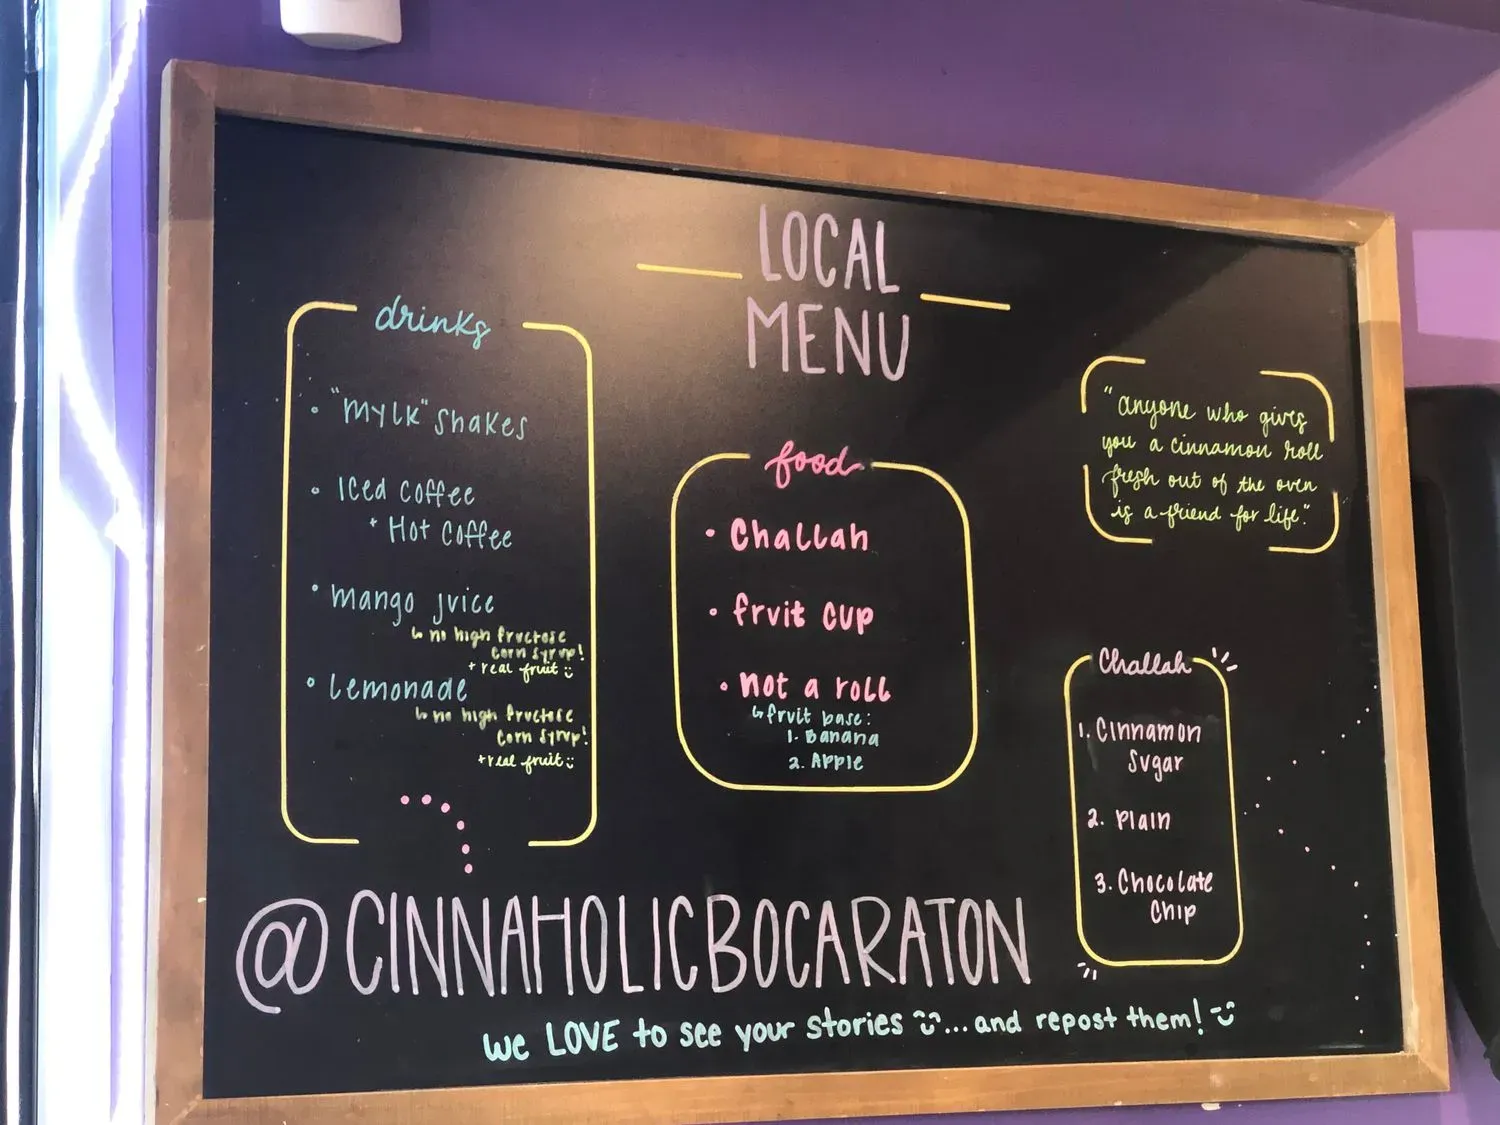 LOCAL
MENU
drinks
• "mylk" shakes
• Iced coffee
• Hot coffee
• mango juice
↳ no high fructose
corn syrup!
+ real fruit :)
• Lemonade
↳ no high fructose
corn syrup!
+real fruit :)
food
• Challah
• fruit cup
• not a roll
↳ fruit base:
1. Banana
2. Apple
"anyone who gives
you a cinnamon roll
fresh out of the oven
is a friend for life."
Challah
1. Cinnamon
Sugar
2. Plain
3. Chocolate
Chip
@CINNAHOLICBOCARATON
we LOVE to see your stories :) ... and repost them! :)